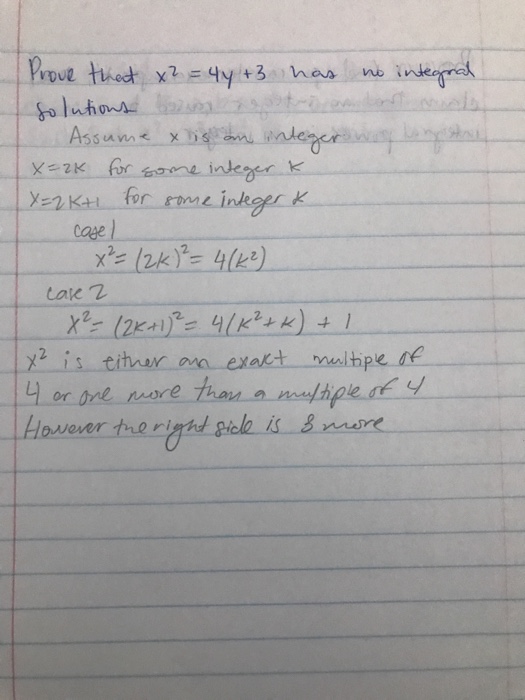 Prove that x² = 4y + 3 has no integral
solutions
Assume x is an integer
x=2k for some integer k
x=2k+1 for some integer k
case 1
x² = (2k)² = 4(k²)
case 2
x² = (2k+1)² = 4(k²+k) + 1
x² is either an exact multiple of
4 or one more than a multiple of 4
However the right side is 3 more